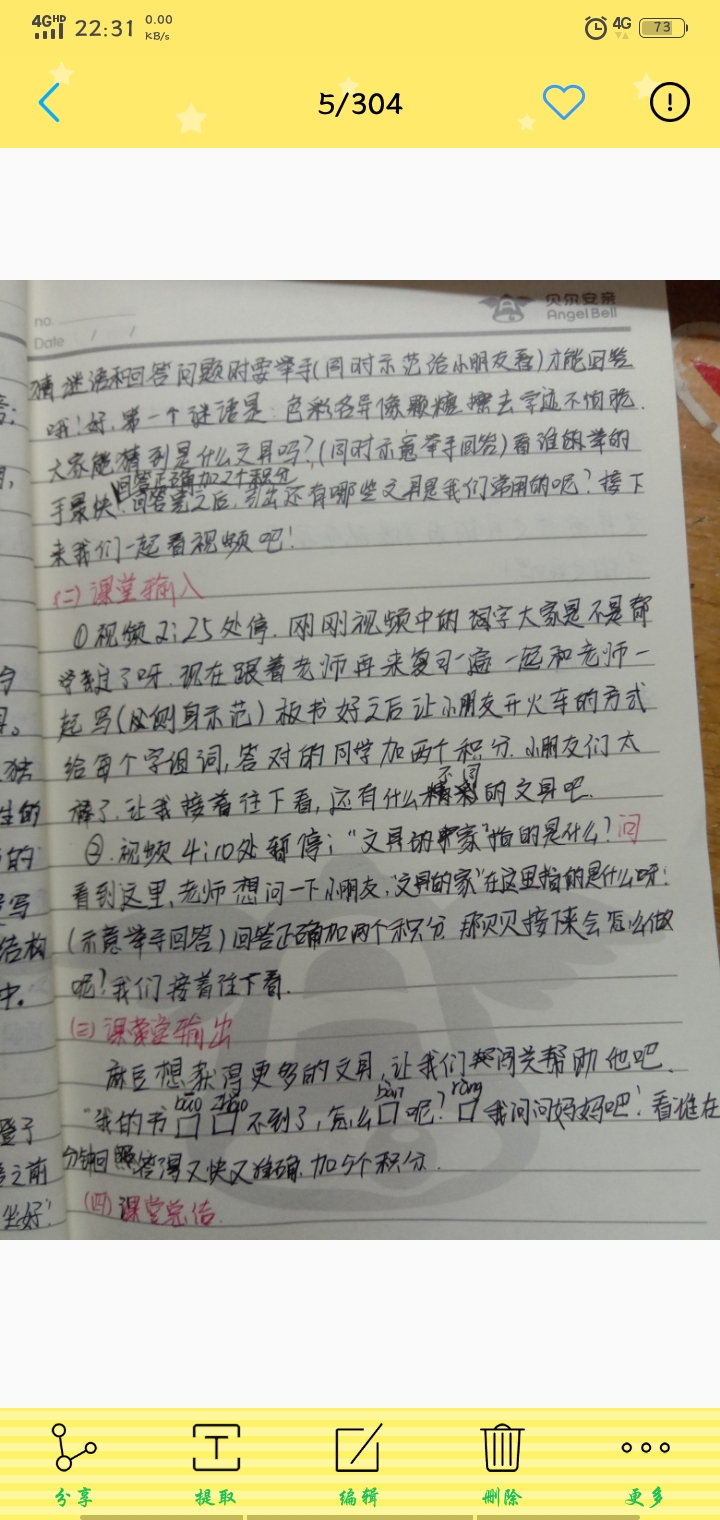 4G HD 22:31 0.00 KB/s 4G 73
5/304
贝尔安亲
AngelBell
no.
Date / /
猜谜语和回答问题时要举手(同时示范给小朋友看)才能回答
哦!好,第一个谜语是:色彩各异像颗糖,擦去字迹不怕脏.
大家能猜到是什么文具吗?(同时示意举手回答)看谁的举的
回答正确加2个积分
手最快.回答完之后,引出还有哪些文具是我们常用的呢?接下
来我们一起看视频吧!
(二)课堂输入
①视频2:25处停.刚刚视频中的词字大家是不是都
学过了呀.现在跟着老师再来复习一遍,一起和老师一
起写(从侧身示范)板书好之后让小朋友开火车的方式
给每个字组词,答对的同学加两个积分.小朋友们太
不同
棒了,让我接着往下看,还有什么的文具吧.
②.视频4:10处暂停:"文具的家"指的是什么?问
看到这里,老师想问一下小朋友,"文具的家"在这里指的是什么呀?
(示意举手回答)回答正确加两个积分.那贝贝接下来会怎么做
呢?我们接着往下看.
(三)课堂输出
麻豆想获得更多的文具,让我们闯关帮助他吧.
bāo zhǎo bàn ràng
"我的书□□不到了,怎么□呢?□我问问妈妈吧!看谁在
分钟回答得又快又准确,加5个积分.
(四)课堂总结.
独
生的
的
写
结构
中.
之前
坐好"
分享 提取 编辑 删除 更多